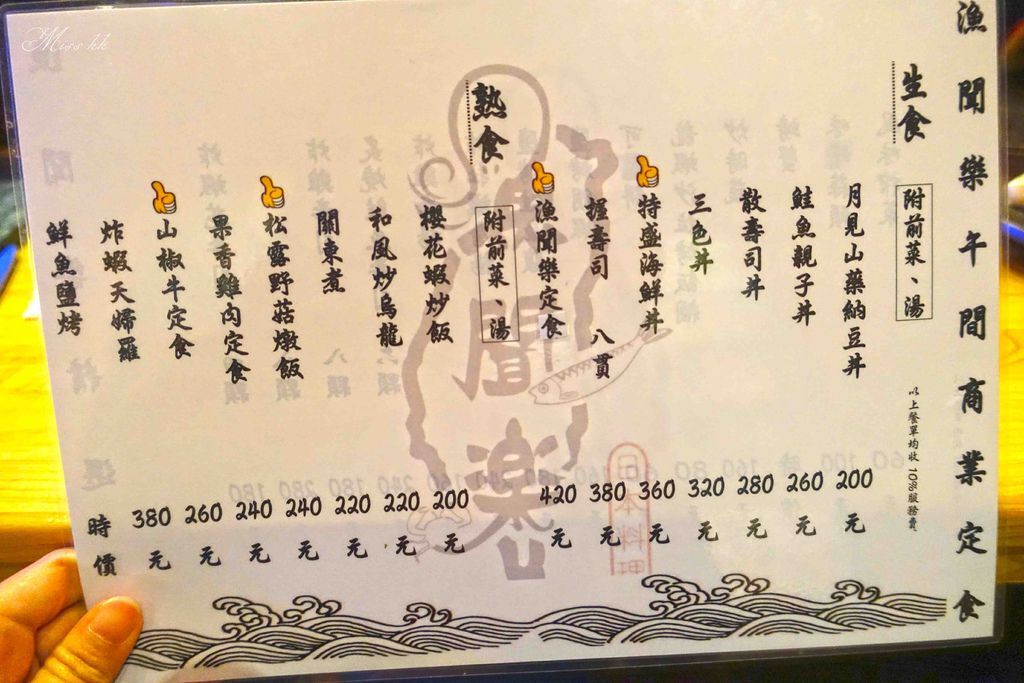 漁聞樂午間商業定食
生食
附前菜、湯
以上餐單均收 10%服務費
月見山藥納豆丼 200元
鮭魚親子丼 260元
散壽司丼 280元
三色丼 320元
特盛海鮮丼 360元
握壽司 八貫 380元
漁聞樂定食 420元
熟食
附前菜、湯
櫻花蝦炒飯 200元
和風炒烏龍 220元
關東煮 220元
松露野菇燉飯 240元
果香雞肉定食 240元
山椒牛定食 260元
炸蝦天婦羅 380元
鮮魚鹽烤 時價
漁聞楽
日本料理
Miss kk